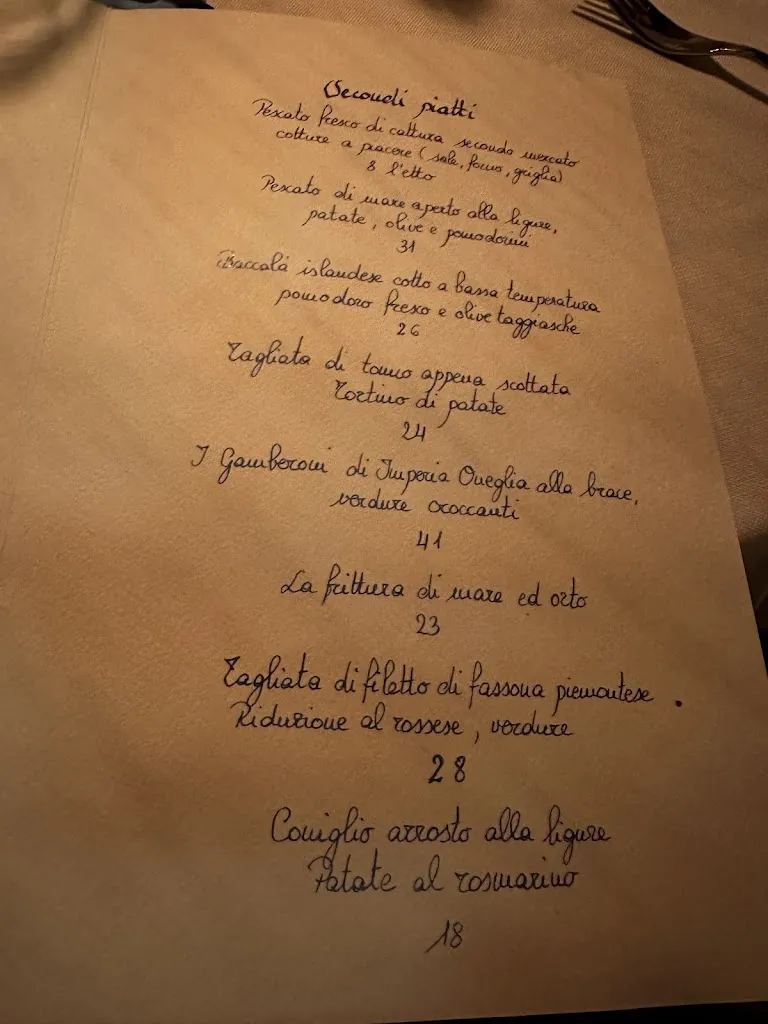 Secondi piatti
Pescato fresco di cattura secondo mercato
cotture a piacere (sale, forno, griglia)
8 l'etto
Pescato di mare aperto alla ligure,
patate, olive e pomodorini
31
Baccalà islandese cotto a bassa temperatura
pomodoro fresco e olive taggiasche
26
Tagliata di tonno appena scottata
Tortino di patate
24
I Gamberoni di Imperia Oneglia alla brace,
verdure croccanti
41
La frittura di mare ed orto
23
Tagliata di filetto di fassona piemontese.
Riduzione al rossese, verdure
28
Coniglio arrosto alla ligure
Patate al rosmarino
18